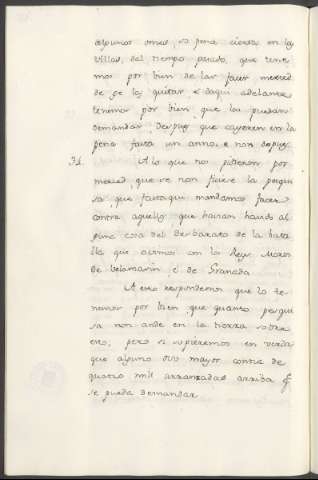 algunos omes, so pena cierta, en las
villas, del tiempo pasado, que tene
mos por bien de les facer merced
de ge las quitar e daqui adelante
tenemos por bien, que las puedan
demandar, despues que cayeren en la
pena fasta un anno, e non despues.
31. A lo que nos pidieron por
merced, que se non ficiese la pesqui
sa, que fastaqui mandamos facer
contra aquellos que havian havido al
guna cosa del desbarato de la bata
lla que ovimos con los Reyes Moros
de Belamarin, e de Granada
A esto respondemos que lo te
nemos por bien, que quanto pesqui
sa non ande en la tierra sobre
esto; pero si supieremos en verdat
que alguno ovo mayor contia de
quatro mil maravedis arriba q̃
se pueda demandar